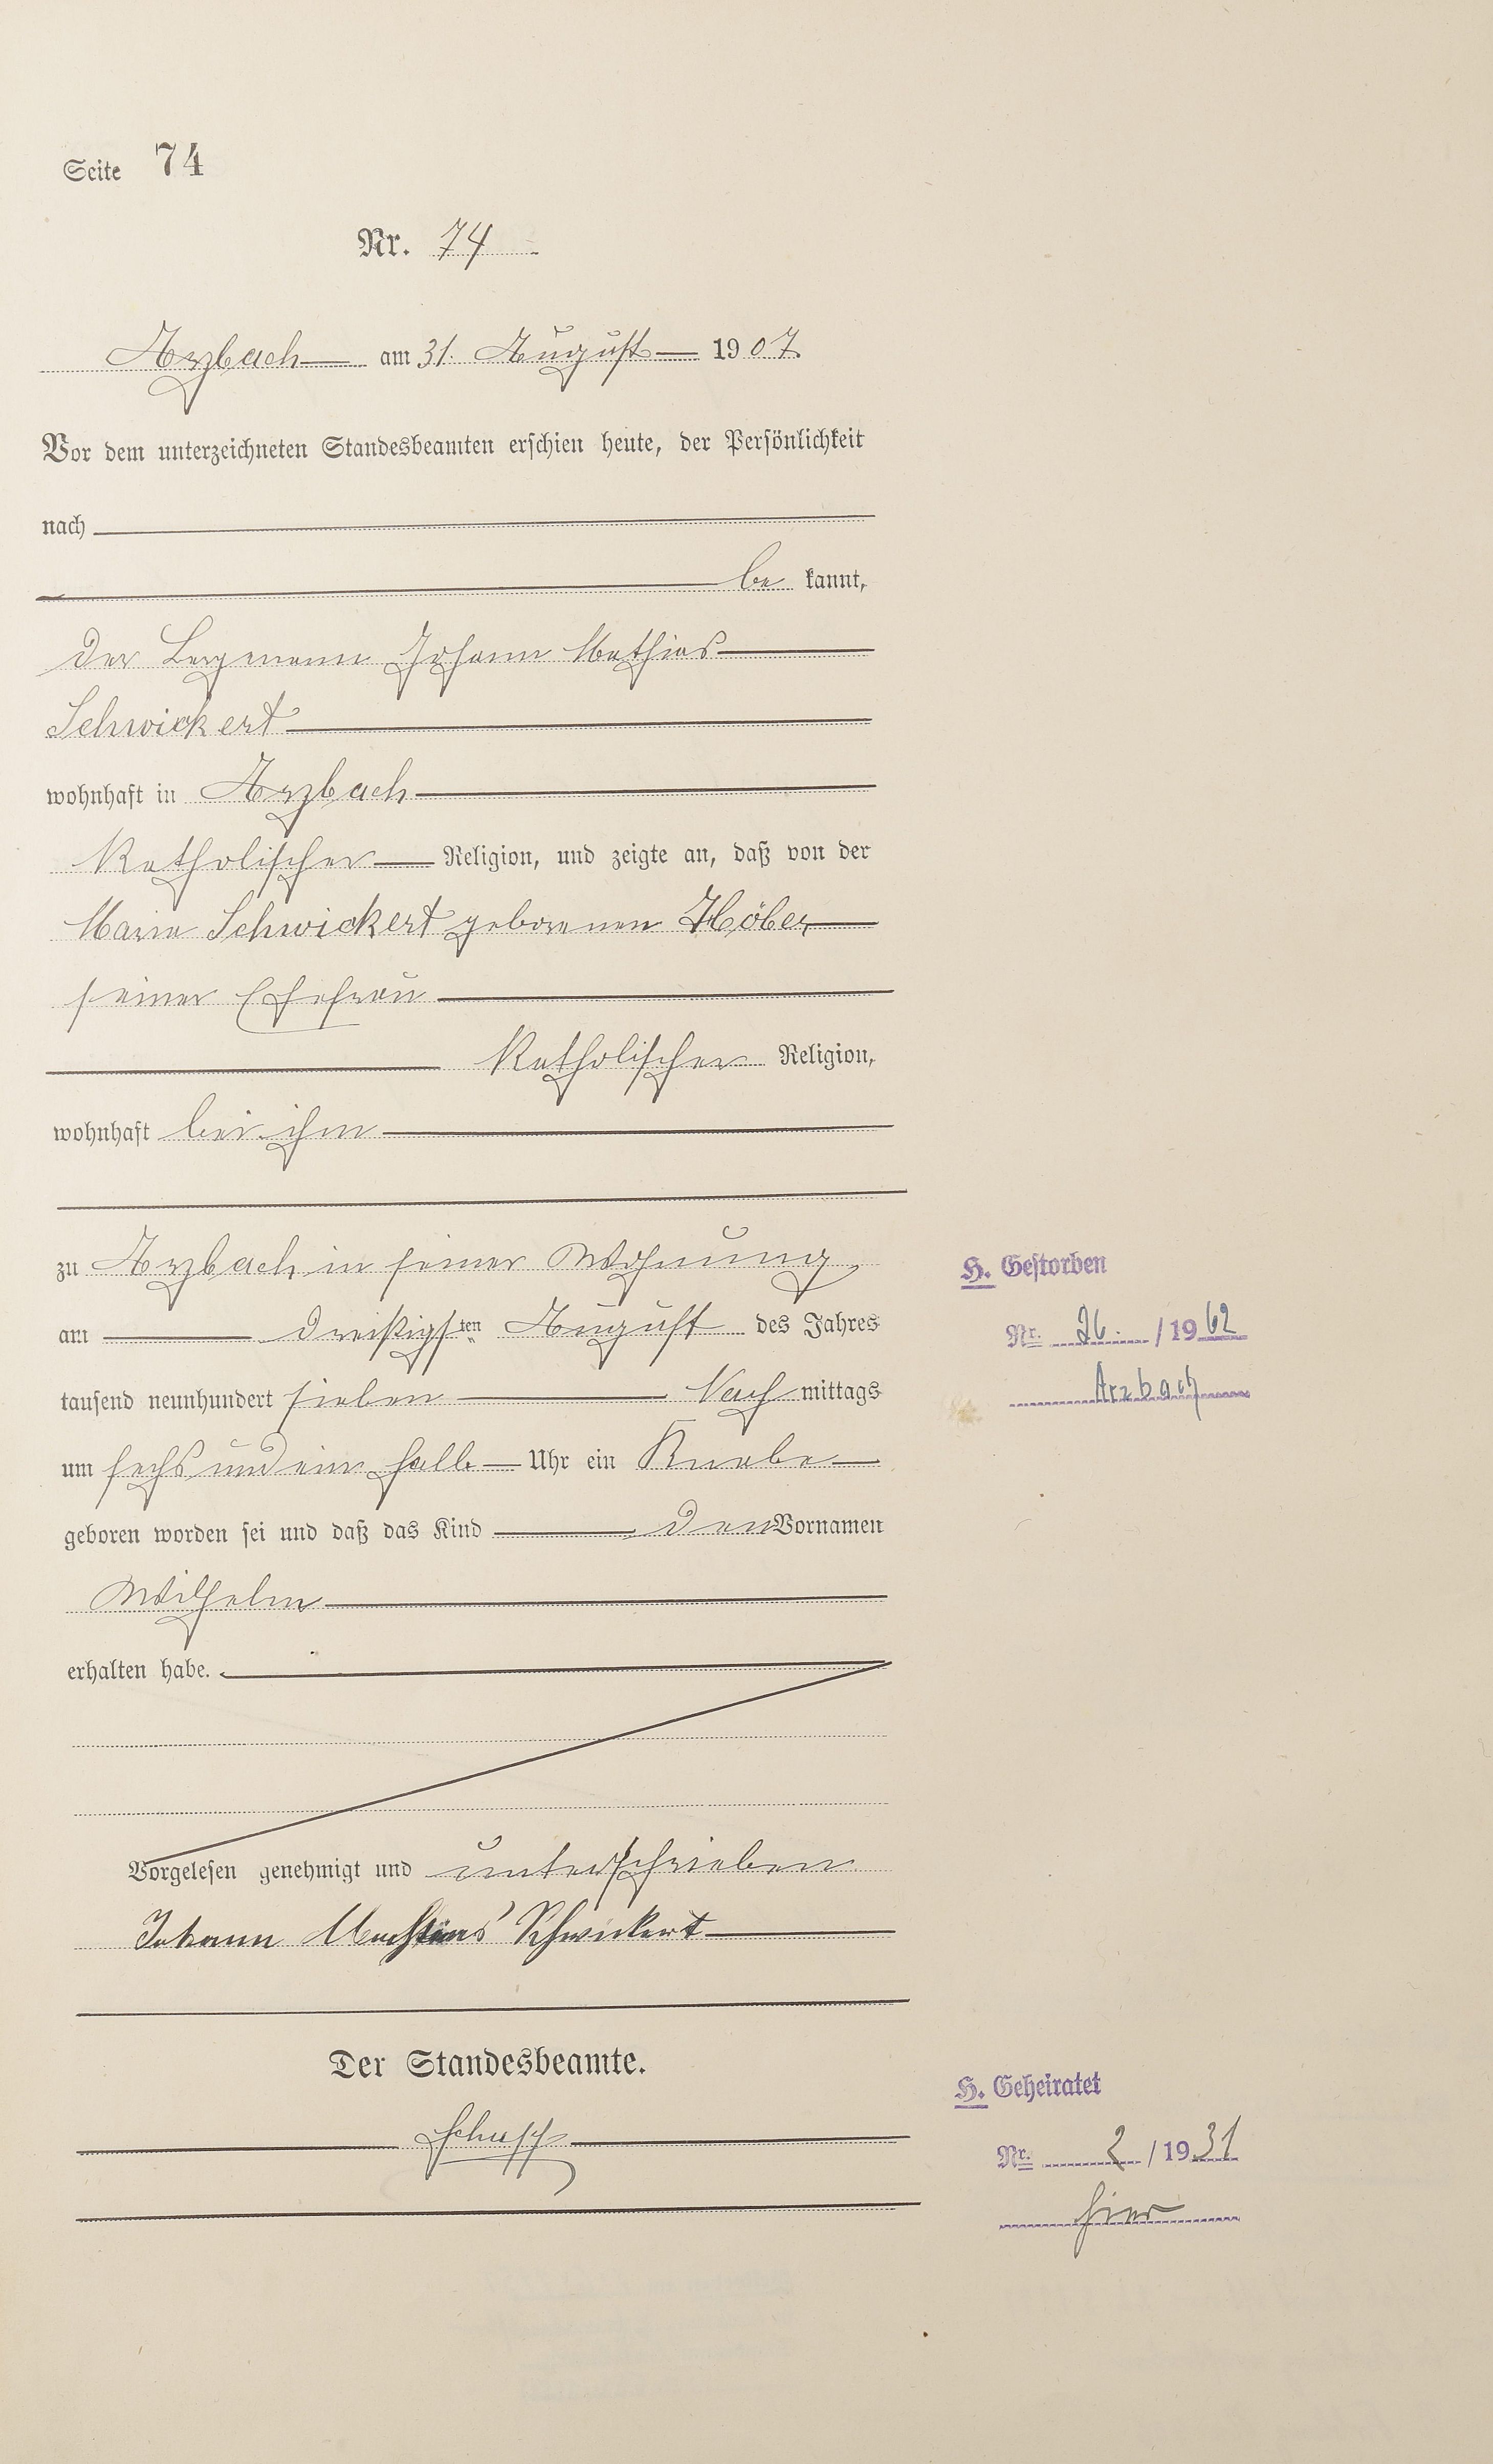 Seite 74
Nr. 74
Arzbach am 31. August 1907
Vor dem unterzeichneten Standesbeamten erschien heute, der Persönlichkeit
nach
be kannt,
der Bergmann Johann Mathias
Schwickert
wohnhaft in Arzbach
Katholischer Religion, und zeigte an, daß von der
Maria Schwickert geborenen Höber
seiner Ehefrau
Katholischer Religion,
wohnhaft bei ihm
zu Arzbach in seiner Wohnung
am dreißigsten August des Jahres
tausend neunhundert sieben Nach mittags
um sechs und ein halb Uhr ein Knabe
geboren worden sei und daß das Kind den Vornamen
Wilhelm
erhalten habe.
Vorgelesen genehmigt und unterschrieben
Johann Mathias Schwickert
Der Standesbeamte.
H. Gestorben
Nr. 26. / 1962
Arzbach
H. Geheiratet
Nr. 2 / 1931
hier